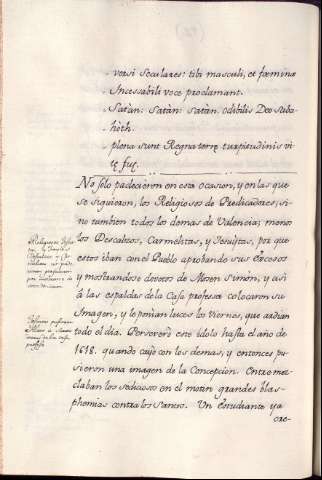 versi Seculares: tibi masculi, et fœminæ
Incessabili voce proclamant.
Satàn: Satàn: Satàn. odibilis Deo Saba-
hòth.
plena sunt Regna terrę turpitudinis vi-
tę fuę.
No solo padecieron en esta ocasion, y en las que
se siguieron, los Religiosos de Predicadores; si-
no tambien todos los demas de Valencia; menos
los Descalsos, Carmelitas, y Jesuitas, por que
estos iban con el Pueblo aprobando sus excesos
y mostrandose devotos de Mosen Simón, y asi
â las espaldas de la Casa profesa colocaron su
Imagen, y le ponian luces los Viernes, que ardian
todo el dia. Perseverò este idolo hasta el año de
1618. quando cayó con los demas, y entonces pu-
sieron una imagen de la Concepcion. Entremez-
claban los sediciosos en el motin grandes blas-
phemias contra los Santos. Un Estudiante ya
ore-
Religiosos